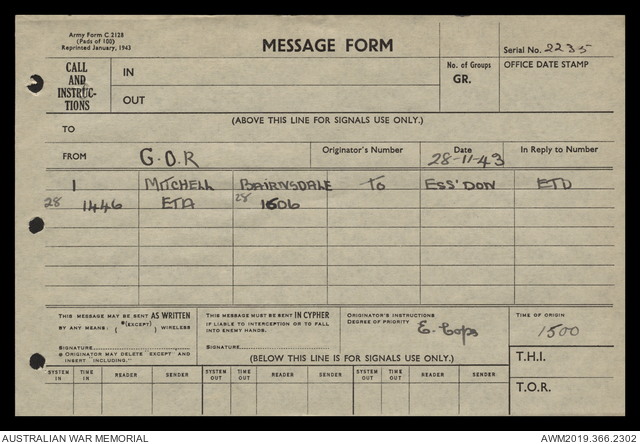 Army Form C.2128
(Pads of 100)
Reprinted January, 1943
MESSAGE FORM
Serial No. 2235
CALL AND INSTRUC-TIONS
IN
OUT
No. of Groups
GR.
OFFICE DATE STAMP
(ABOVE THIS LINE FOR SIGNALS USE ONLY.)
TO
FROM G.O.R
Originator's Number
Date
28-11-43
In Reply to Number
1 MITCHELL BAIRNSDALE TO ESS'DON ETD
28 1446 ETA 28 1606
THIS MESSAGE MAY BE SENT AS WRITTEN
BY ANY MEANS. { *(EXCEPT) } WIRELESS
SIGNATURE
* ORIGINATOR MAY DELETE "EXCEPT AND
INSERT INCLUDING."
THIS MESSAGE MUST BE SENT IN CYPHER
IF LIABLE TO INTERCEPTION OR TO FALL
INTO ENEMY HANDS.
SIGNATURE
ORIGINATOR'S INSTRUCTIONS
DEGREE OF PRIORITY
E. Cops
TIME OF ORIGIN
1500
(BELOW THIS LINE IS FOR SIGNALS USE ONLY.)
T.H.I.
T.O.R.
SYSTEM IN TIME IN READER SENDER SYSTEM OUT TIME OUT READER SENDER SYSTEM OUT TIME OUT READER SENDER
AUSTRALIAN WAR MEMORIAL
AWM2019.366.2302